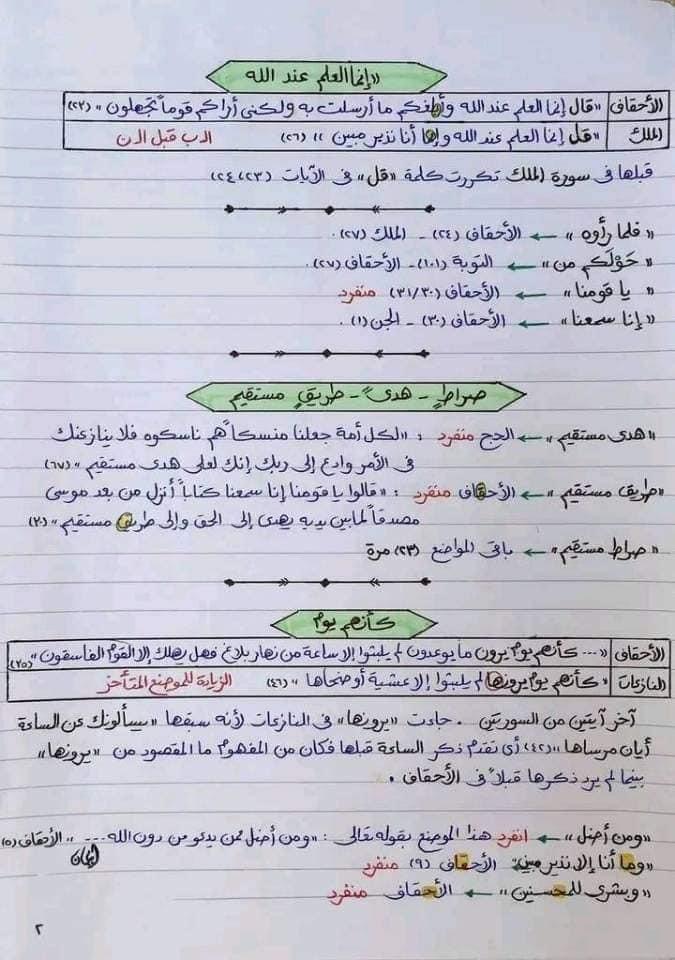 «إنما العلم عند الله
الأحقاف «قال إنما العلم عند الله وأبلغكم ما أرسلت به ولكنى أراكم قوماً تجهلون» (٢٣)
الملك «قل إنما العلم عند الله وإنما أنا نذير مبين» (٢٦) الـ ب قبل الـ ن
قبلها فى سورة الملك تكررت كلمة «قل» فى الآيات (٢٣، ٢٤)
«فلما رأوه» ← الأحقاف (٢٤) - الملك (٢٧).
«حَوْلَكم من» ← التوبة (١٠١) - الأحقاف (٢٧).
«يا قومنا» ← الأحقاف (٣٠/٣١) منفرد
«إنا سمعنا» ← الأحقاف (٣٠) - الجن (١).
صراطٍ - هدىً - طريقٍ مستقيم
«هدى مستقيم» ← الحج منفرد : «لكل أمة جعلنا منسكاً هم ناسكوه فلا ينازعنك
فى الأمر وادع إلى ربك إنك لعلى هدى مستقيم» (٦٧)
«طريق مستقيم» ← الأحقاف منفرد : «قالوا يا قومنا إنا سمعنا كتاباً أنزل من بعد موسى
مصدقاً لما بين يديه يهدى إلى الحق وإلى طريق مستقيم» (٣٠)
«صراط مستقيم» ← باقى المواضع (٢٣) مرة
كأنهم يوم
الأحقاف «... كأنهم يوم يرون ما يوعدون لم يلبثوا إلا ساعة من نهار بلاغ فهل يهلك إلا القوم الفاسقون» (٣٥)
النازعات «كأنهم يوم يرونها لم يلبثوا إلا عشية أو ضحاها» (٤٦) الزيادة للموضع المتأخر
آخر آيتين من السورتين . جاءت «يرونها» فى النازعات لأنه سبقها «يسألونك عن الساعة
أيان مرساها» (٤٢) أى تقدم ذكر الساعة قبلها فكان من المفهوم ما المقصود من «يرونها»
بينما لم يرد ذكرها قبلاً فى الأحقاف .
«ومن أضل» ← انفرد هذا الموضع بقوله تعالى : «ومن أضل ممن يدعو من دون الله ... » الأحقاف (٥)
«وما أنا إلا نذير مبين» ← الأحقاف (٩) منفرد
إيمان
«وبشرى للمحسنين» ← الأحقاف منفرد
٢